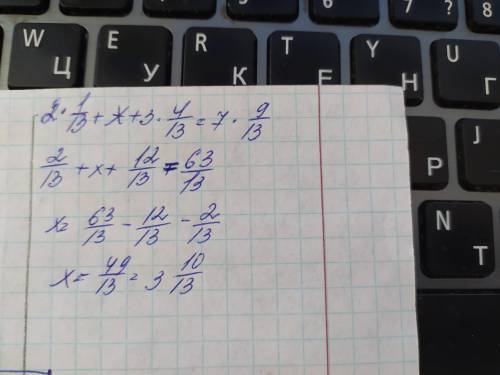 7 ? 8
W Ц E У R К T Е Y Н U Г
P J
N Т
2 · 1/13 + x + 3 · 4/13 = 7 · 9/13
2/13 + x + 12/13 = 63/13
x = 63/13 - 12/13 - 2/13
x = 49/13 = 3 10/13